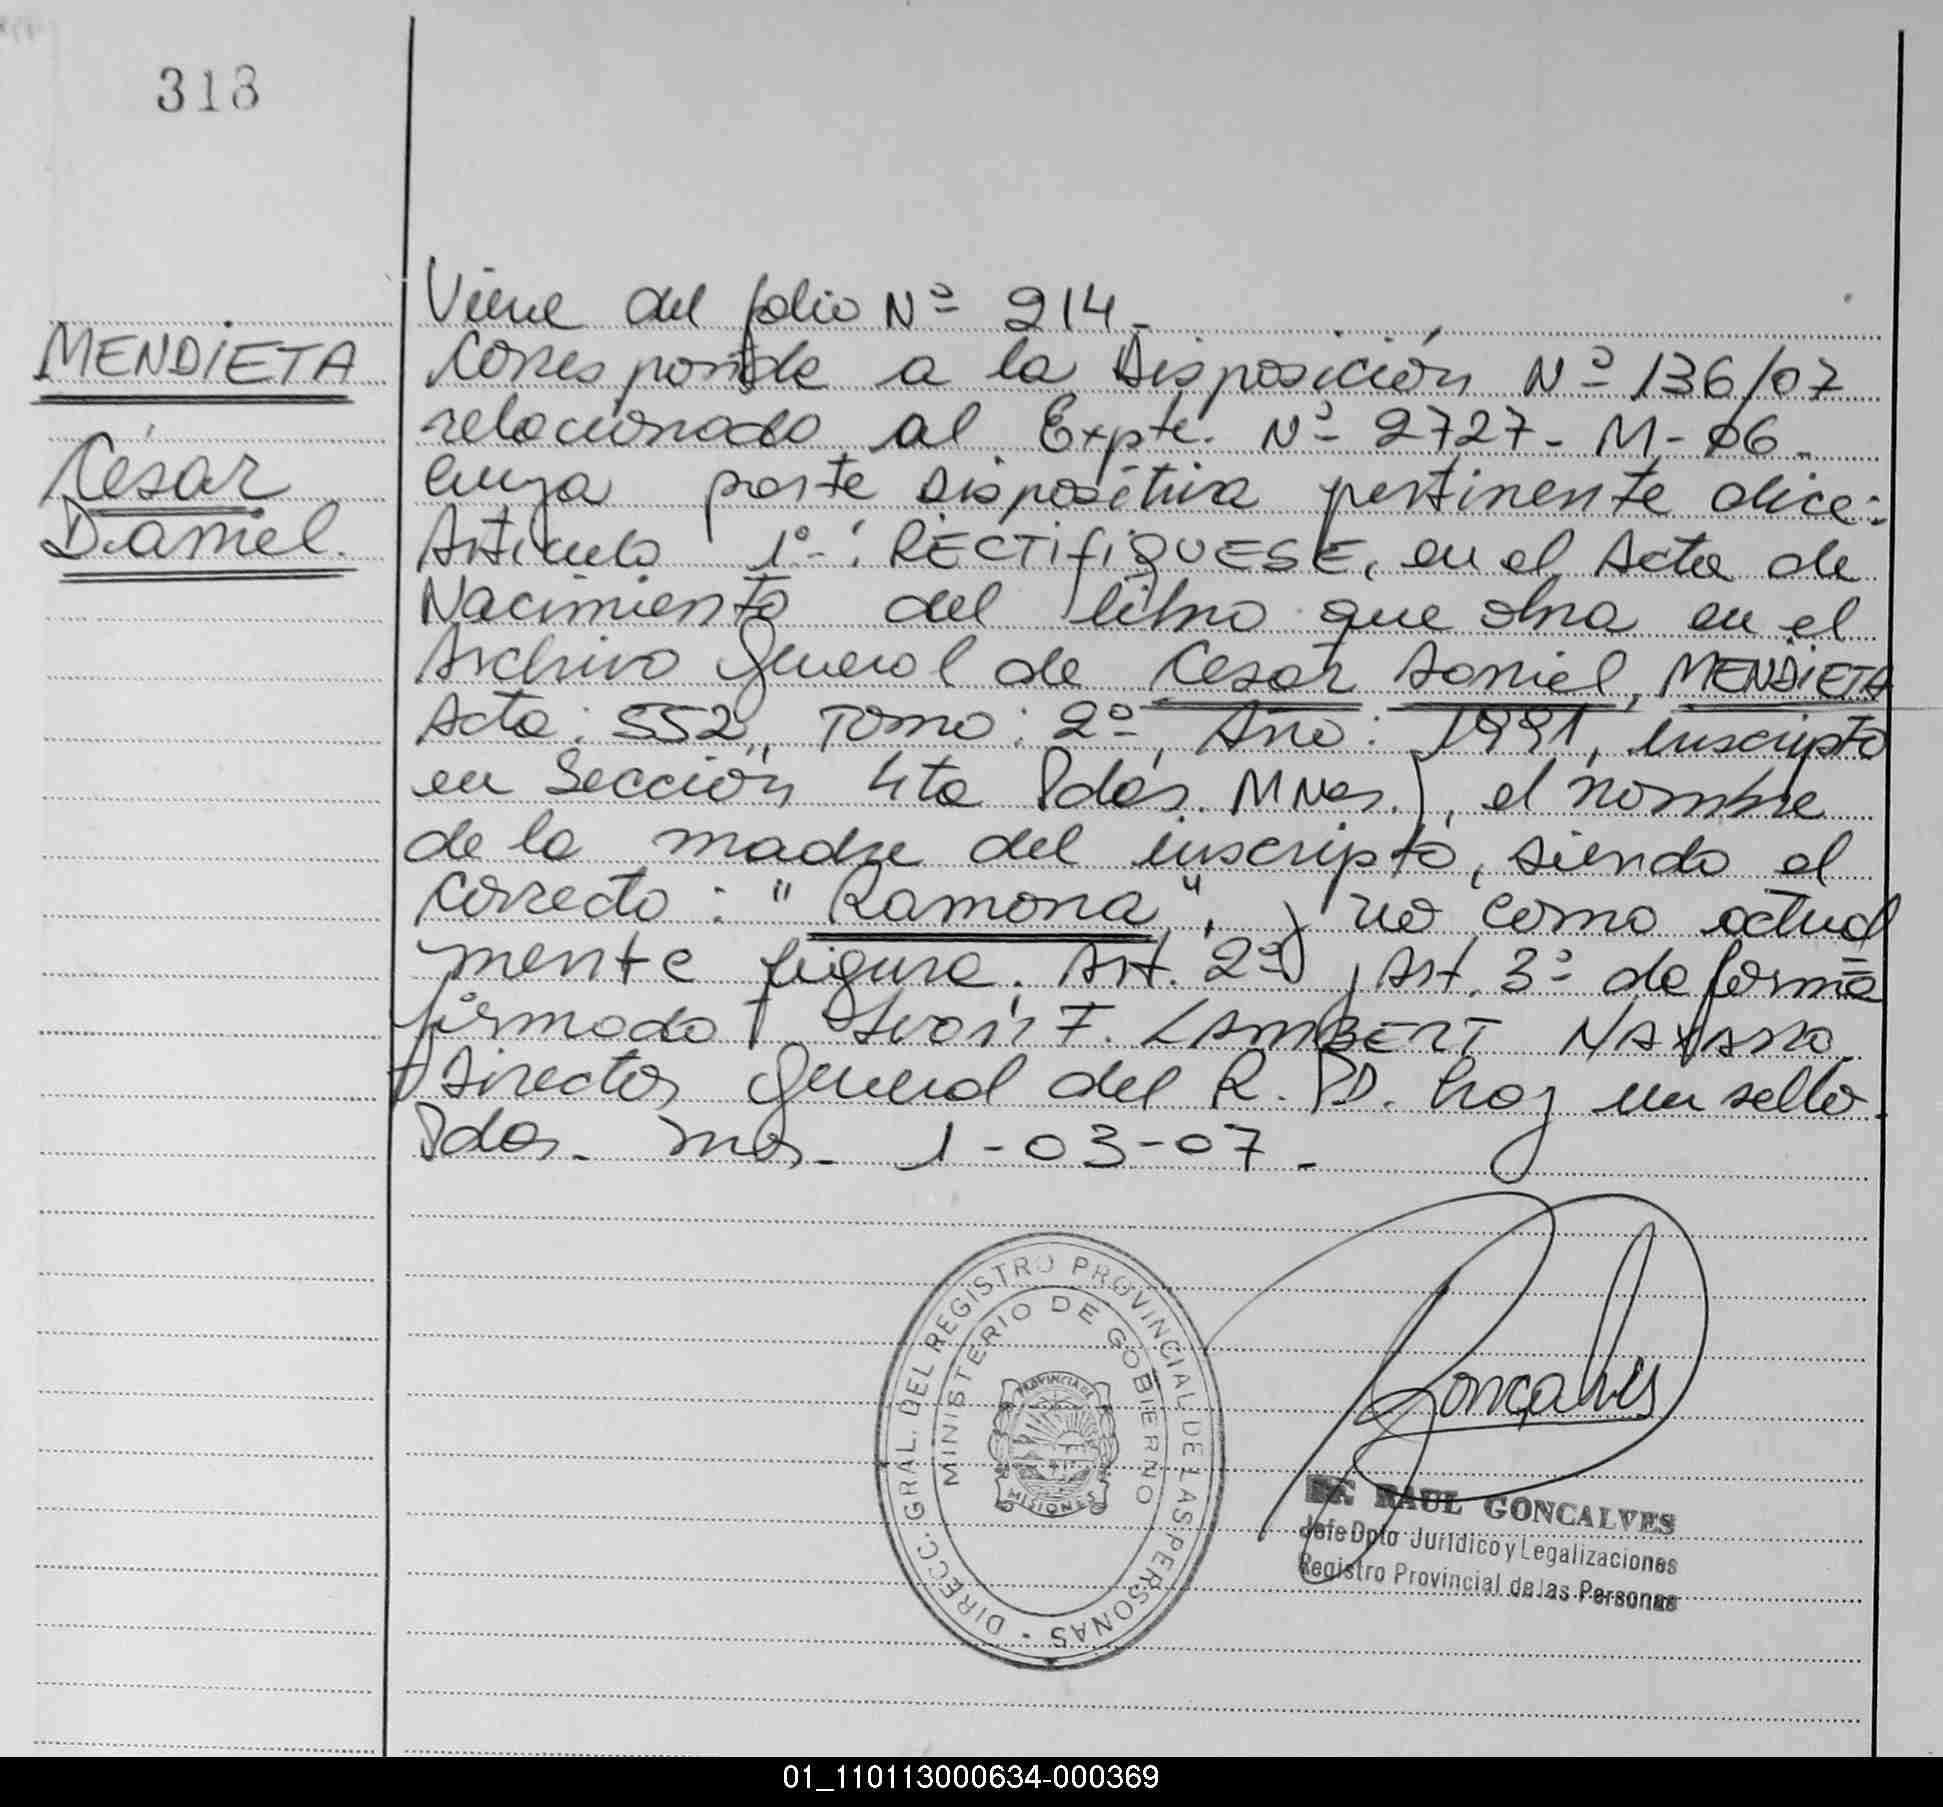 318
MENDIETA
César
Daniel.
Viene del folio Nº 214.-
Corresponde a la Disposición Nº 136/07
relacionado al Expte. Nº 2727- M- 06.
cuya parte dispositiva pertinente dice:
Articulo 1º-: RECTIFIQUESE, en el Acta de
Nacimiento del libro que obra en el
Archivo General de Cesar Daniel, MENDIETA
Acta: 552, Tomo: 2º, Año: 1991, inscripto
en Sección 4ta Pdas. Mnes.), el nombre
de la madre del inscripto, siendo el
correcto: "Ramona". y no como actual
mente figura. Art. 2º y Art. 3º de forma
firmado F. LAMBERT
Director General del R.P.D. hay un sello.
Pdas. Mnes. 1-03-07.-
DIRECC. GRAL. DEL REGISTRO PROVINCIAL DE LAS PERSONAS
MINISTERIO DE GOBIERNO
PROVINCIA DE
MISIONES
Goncalves
RAUL GONCALVES
Jefe Dpto Jurídico y Legalizaciones
Registro Provincial de las Personas
01_110113000634-000369